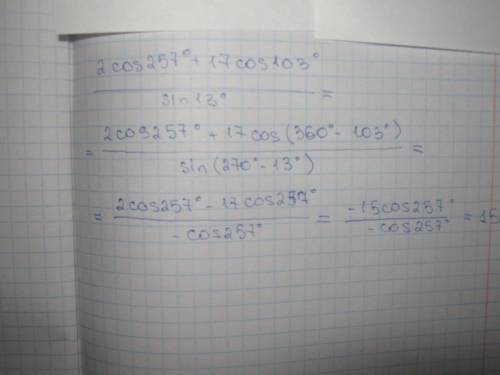 2cos257° + 17cos103°
sin13° =
= 2cos257° + 17cos(360° - 103°)
sin(270° - 13°) =
= 2cos257° - 17cos257° = -15cos257° = 15
-cos257° -cos257°